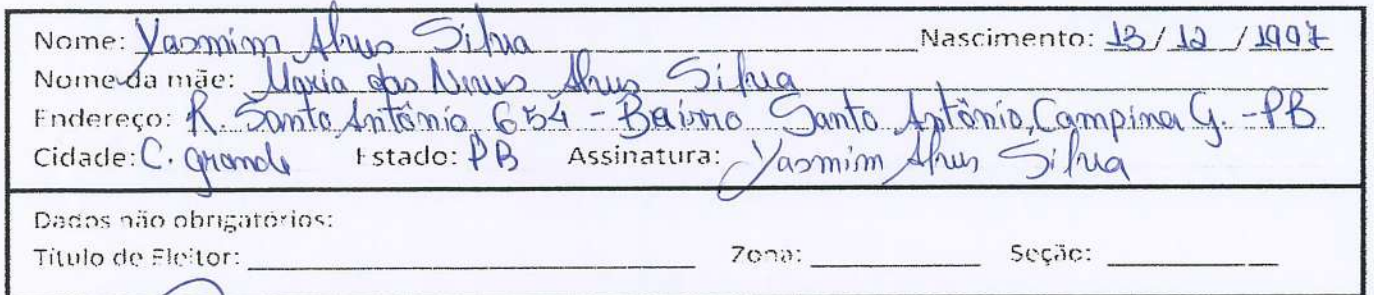 Nome: Yasmim Alves Silva Nascimento: 13/12/1997
Nome da mãe: Maria das Neves Alves Silva
Endereço: R. Santo Antônio, 654 - Bairro Santo Antônio, Campina G. - PB
Cidade: C. grande Estado: PB Assinatura: Yasmim Alves Silva
Dados não obrigatórios:
Título de Eleitor: Zona: Seção: